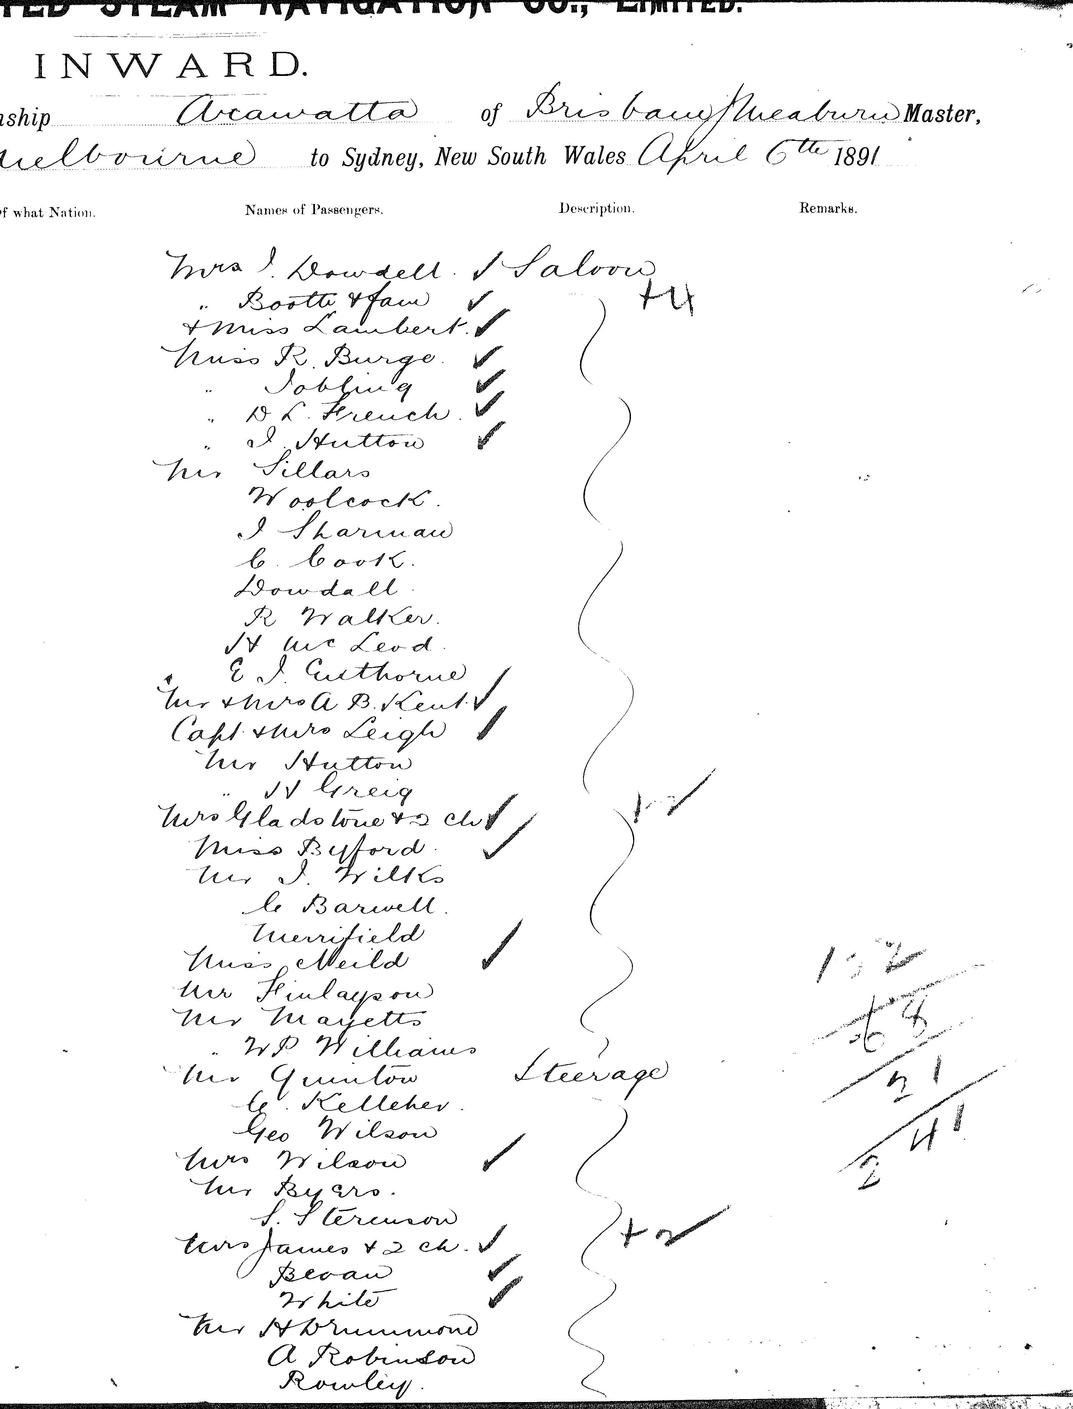 STEAM NAVIGATION CO., LIMITED.
INWARD.
Arawatta of Brisbane Meaburn Master,
Melbourne to Sydney, New South Wales April 6th 1891
of what Nation. Names of Passengers. Description. Remarks.
Mrs J. Dowdell. Saloon
" Booth & fam +4
& Miss Lambert.
Miss R. Burge.
" Jobling
" D L. French.
" J. Hutton
Mr Sillars
Woolcock.
J Sharman
C. Cook.
Dowdall.
R Walker.
H McLeod.
E J.
Mr & Mrs A B. Kent.
Capt. & Mrs Leigh
Mr Hutton
" H Greig
Mrs Gladstone & 2 ch +2
Miss Byford.
Mr J. Wilks
C Barwell.
Merrifield
Miss Neild
Mr Finlayson
Mr Mayetts
" W P Williams
Mr Quinton Steerage
C. Kelleher.
Geo Wilson
Mrs Wilson
Mr Byers.
S. Stevenson
Mrs James & 2 ch. +2
Bevan
White
Mr H Drummond
A Robinson
Rowley.
152
68
21
241